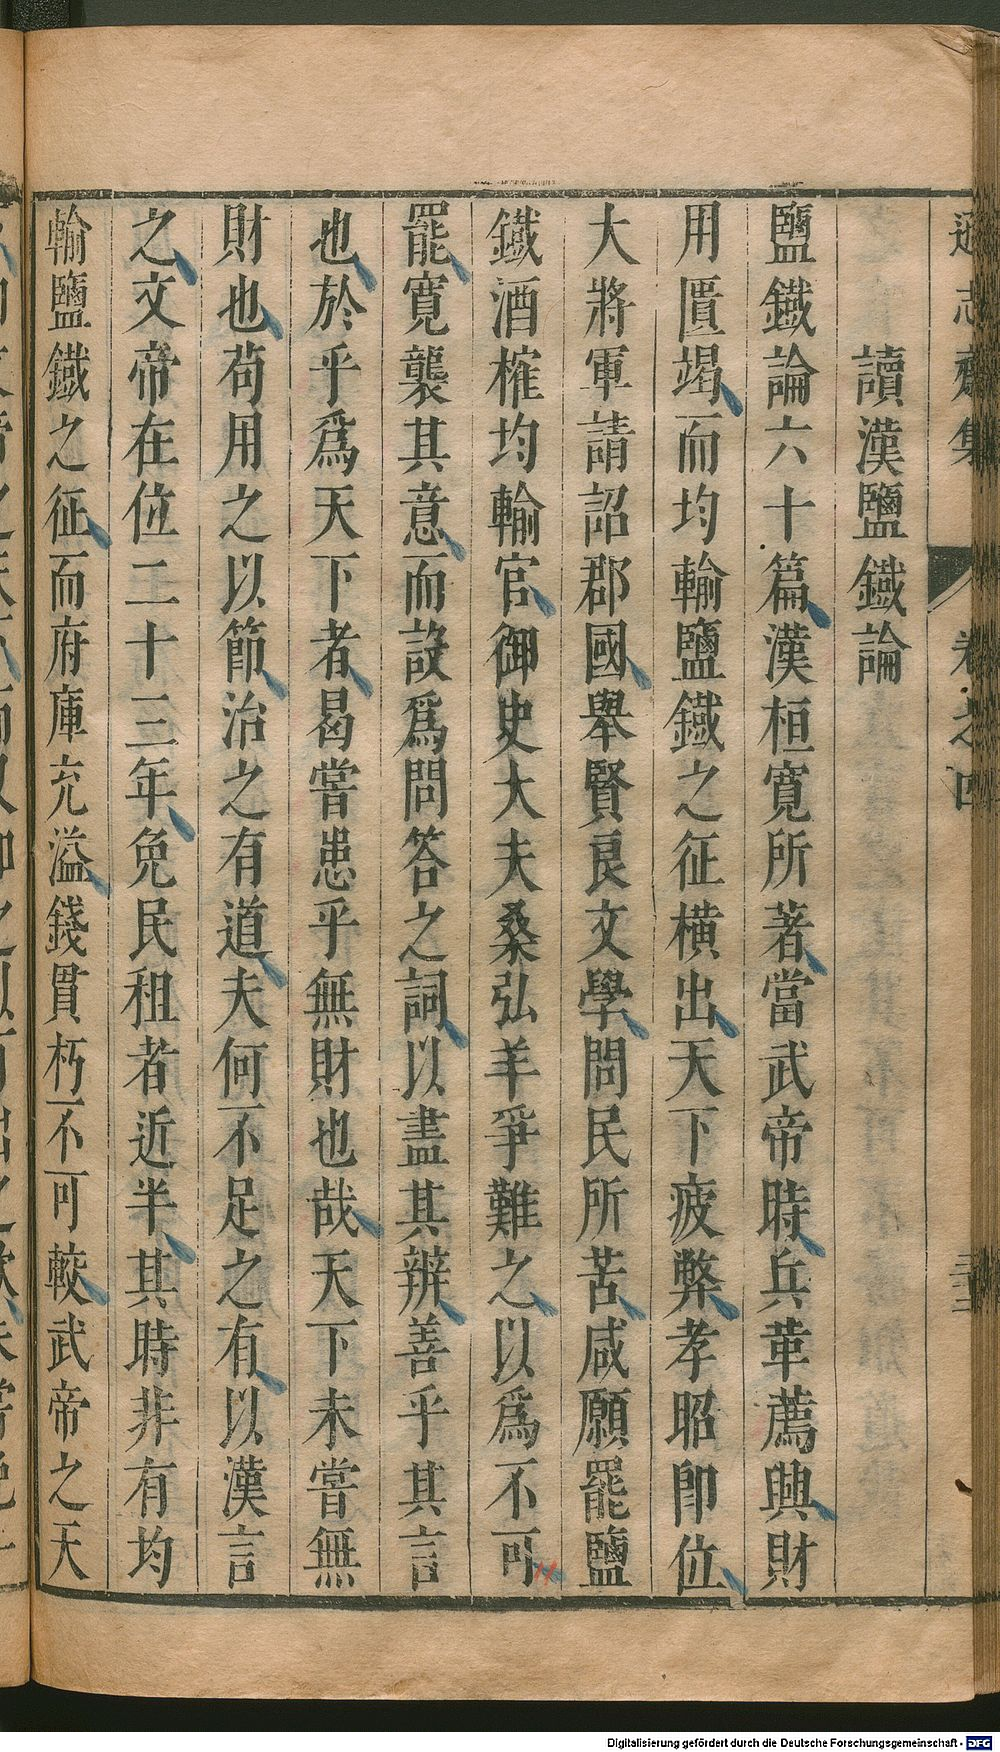 讀漢鹽鐵論
鹽鐵論六十篇漢桓寬所著當武帝時兵革薦興財
用匱竭而均輸鹽鐵之征橫出天下疲弊孝昭卽位
大將軍請詔郡國舉賢良文學問民所苦咸願罷鹽
鐵酒榷均輸官御史大夫桑弘羊爭難之以爲不可
罷寬襲其意而設爲問答之詞以盡其辨善乎其言
也於乎爲天下者曷嘗患乎無財也哉天下未嘗無
財也苟用之以節治之有道夫何不足之有以漢言
之文帝在位二十三年免民租者近半其時非有均
輸鹽鐵之征而府庫充溢錢貫朽不可較武帝之天
Digitalisierung gefördert durch die Deutsche Forschungsgemeinschaft - DFG